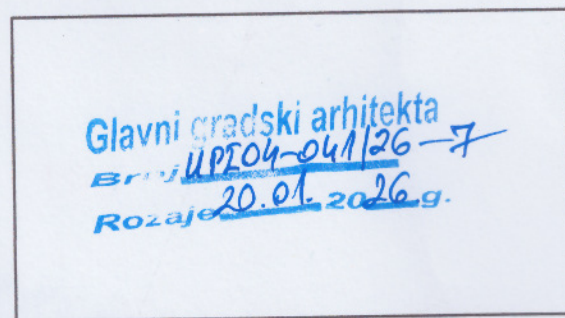 Glavni gradski arhitekta
Broj UPI04-041/26-7
Rozaje 20.01. 2026 g.